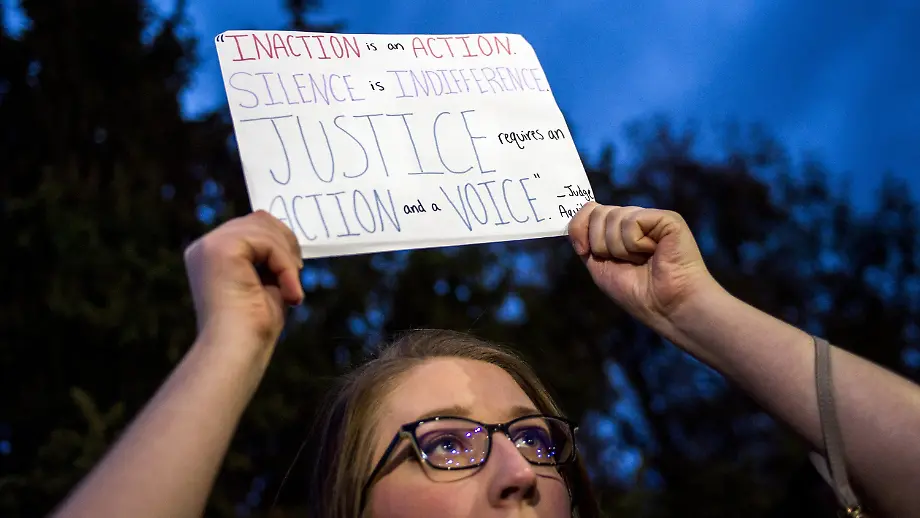 "INACTION is an ACTION.
SILENCE is INDIFFERENCE.
JUSTICE requires an
ACTION and a VOICE".
_Judge